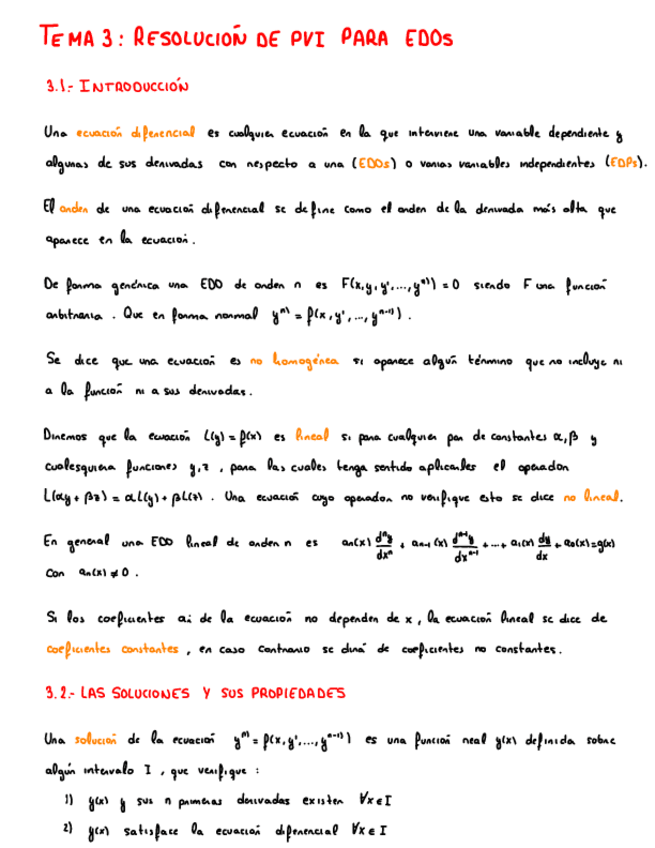 TEMA 3: RESOLUCIÓN DE PVI PARA EDOs
3.1.- INTRODUCCIÓN
Una ecuación diferencial es cualquier ecuación en la que interviene una variable dependiente y
algunas de sus derivadas con respecto a una (EDOs) o varias variables independientes (EDPs).
El orden de una ecuación diferencial se define como el orden de la derivada más alta que
aparece en la ecuación.
De forma genérica una EDO de orden n es F(x,y,y',...,yⁿ⁾) = 0 siendo F una función
arbitraria. Que en forma normal yⁿ⁾ = f(x,y',...,yⁿ⁻¹⁾).
Se dice que una ecuación es no homogénea si aparece algún término que no incluye ni
a la función ni a sus derivadas.
Diremos que la ecuación L(y) = f(x) es lineal si para cualquier par de constantes α,β y
cualesquiera funciones y,z, para las cuales tenga sentido aplicarles el operador
L(αy + βz) = αL(y) + βL(z). Una ecuación cuyo operador no verifique esto se dice no lineal.
En general una EDO lineal de orden n es an(x) dⁿy/dxⁿ + an-1(x) dⁿ⁻¹y/dxⁿ⁻¹ + ... + a1(x) dy/dx + a0(x)=g(x)
con an(x) ≠ 0.
Si los coeficientes ai de la ecuación no dependen de x, la ecuación lineal se dice de
coeficientes constantes, en caso contrario se dirá de coeficientes no constantes.
3.2.- LAS SOLUCIONES Y SUS PROPIEDADES
Una solución de la ecuación yⁿ⁾ = f(x,y',...,yⁿ⁻¹⁾) es una función real y(x) definida sobre
algún intervalo I, que verifique:
1) y(x) y sus n primeras derivadas existen ∀x∈I
2) y(x) satisface la ecuación diferencial ∀x∈I